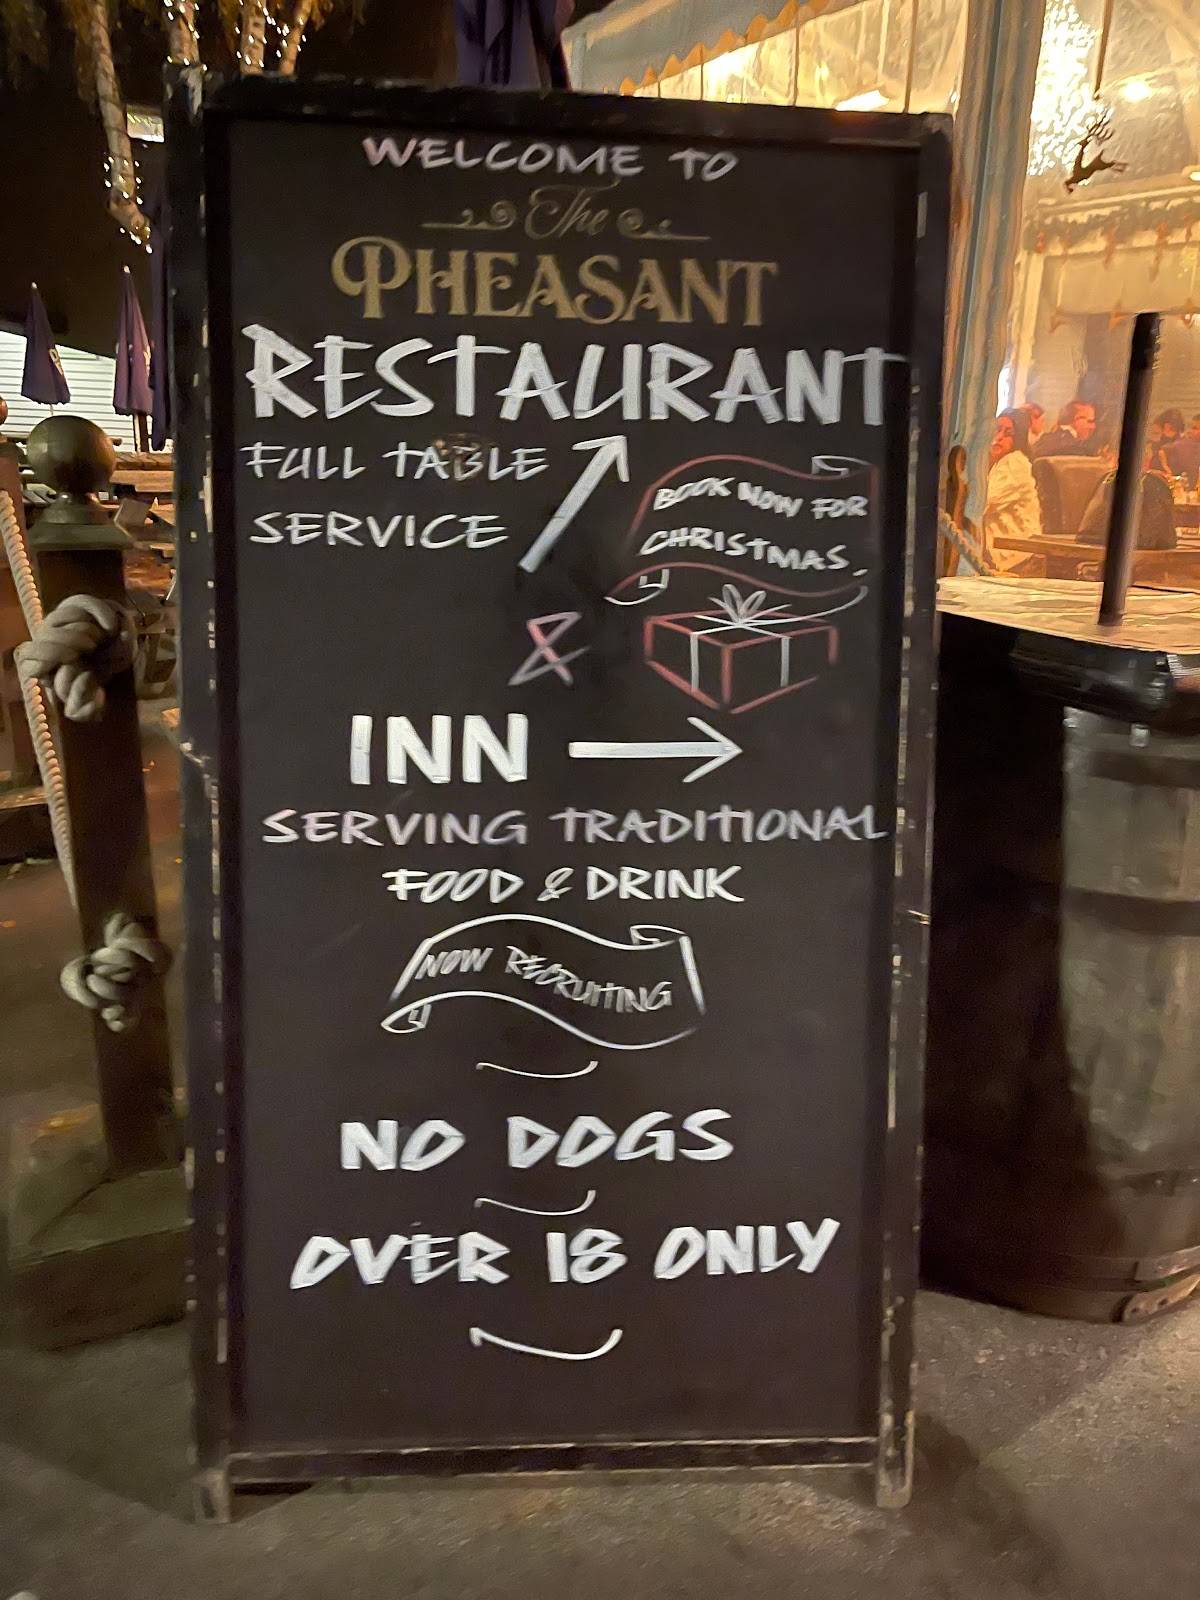 WELCOME TO
The
PHEASANT
RESTAURANT
FULL TABLE
SERVICE
BOOK NOW FOR
CHRISTMAS.
&
INN
SERVING TRADITIONAL
FOOD & DRINK
NOW RECRUITING
NO DOGS
OVER 18 ONLY